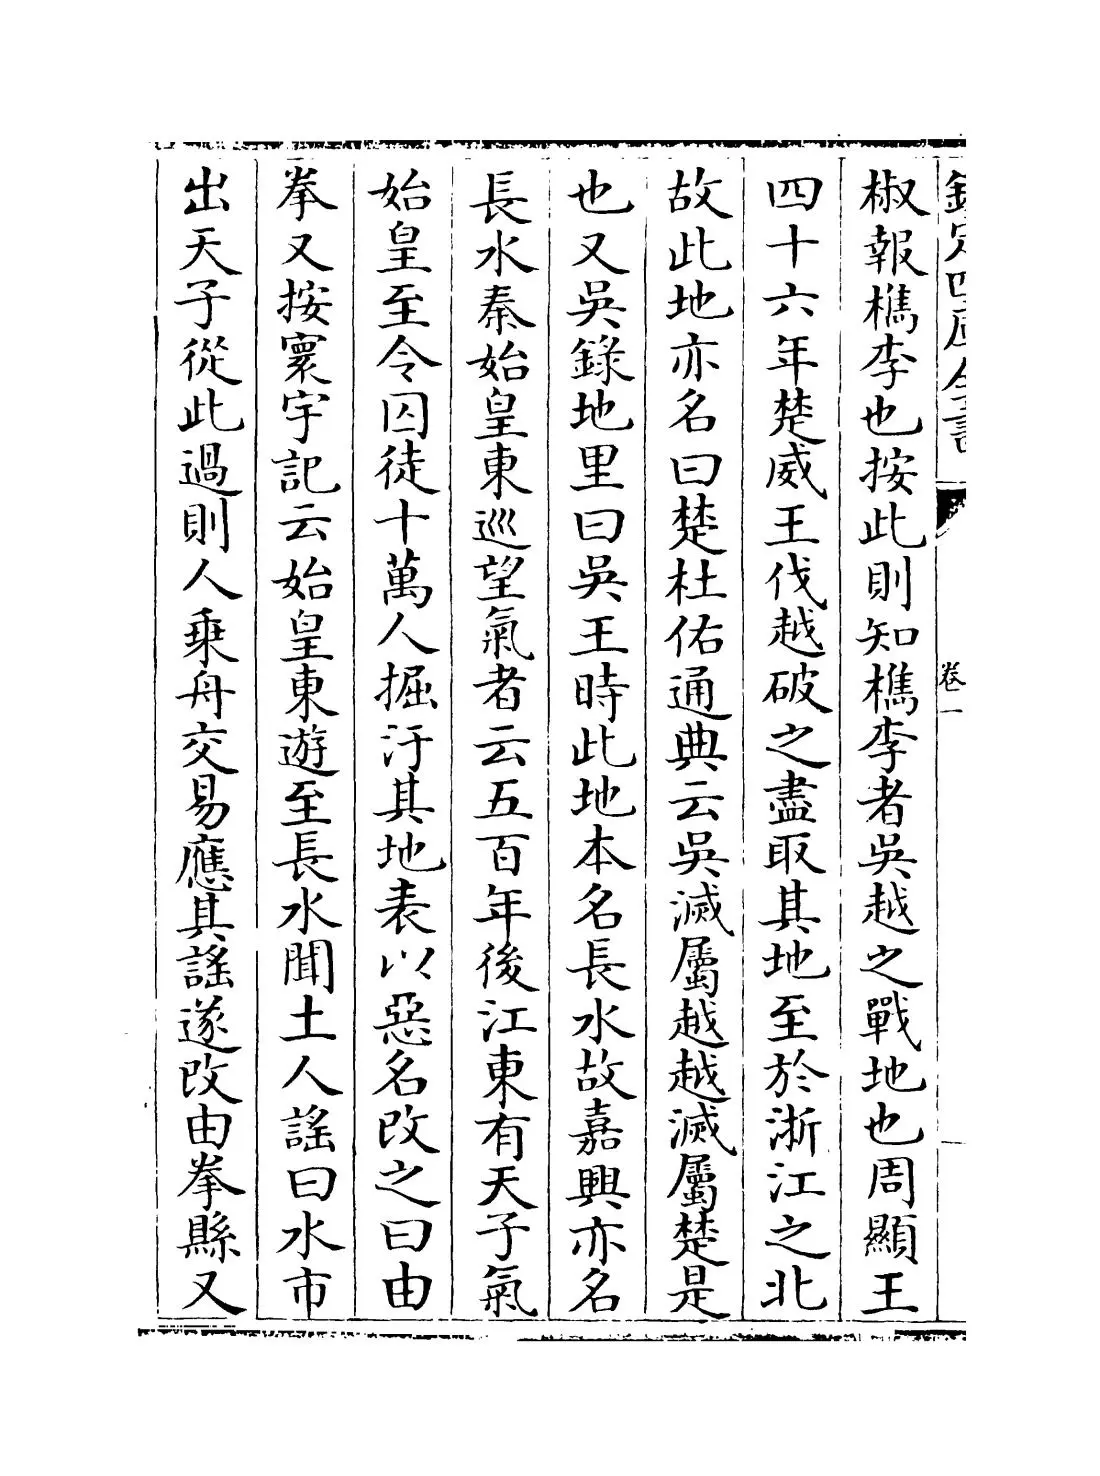 欽定四庫全書
卷一
椒報檇李也按此則知檇李者吳越之戰地也周顯王
四十六年楚威王伐越破之盡取其地至於浙江之北
故此地亦名曰楚杜佑通典云吳滅屬越越滅屬楚是
也又吳錄地里曰吳王時此地本名長水故嘉興亦名
長水秦始皇東巡望氣者云五百年後江東有天子氣
始皇至令囚徒十萬人掘汙其地表以惡名改之曰由
拳又按寰宇記云始皇東遊至長水聞土人謠曰水市
出天子從此過則人乗舟交易應其謠遂改由拳縣又